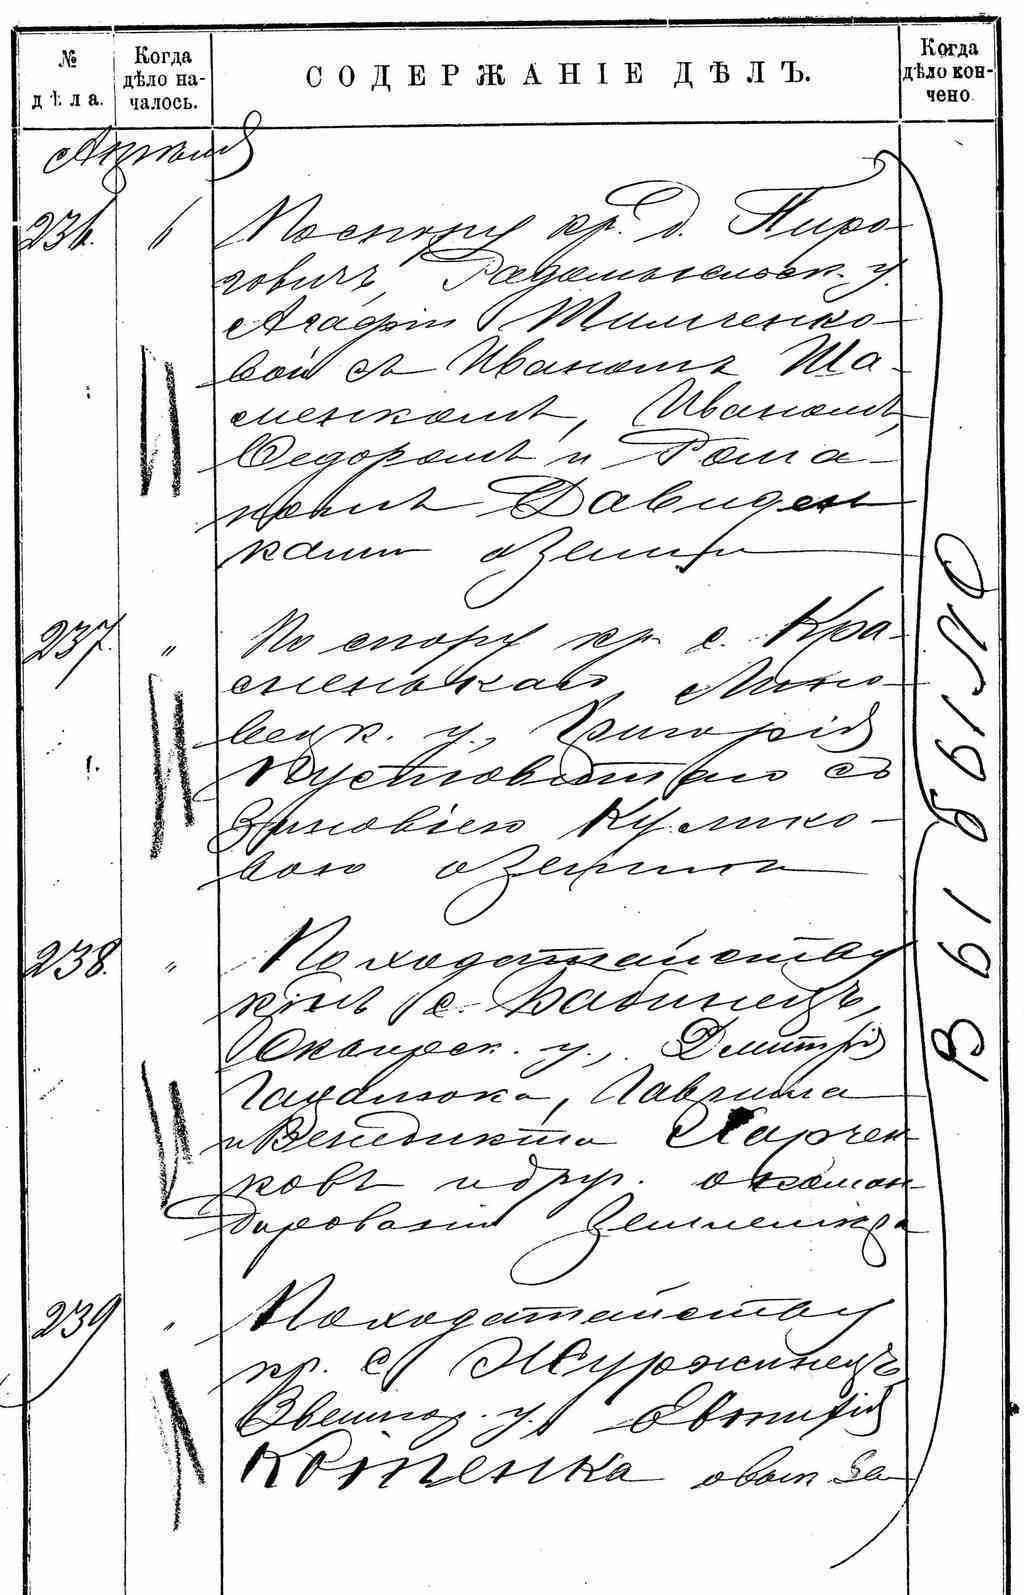 № дѣла.
Когда дѣло началось.
СОДЕРЖАНІЕ ДѢЛЪ.
Когда дѣло кончено.
Апрѣля
236. 6 По спору кр. д. Пиро-
говичъ, Радомысльск. у.
Агафіи Тимченко-
вой съ Иваномъ Ша-
менкомъ, Иваномъ,
Ѳедоромъ и Рома-
номъ Давиден-
ками о земли
237. " По спору кр. с. Кра-
сненькаго, Липо-
вецк. у., Григорія
Пустовойтаго съ
Зиновіею Кулико-
вою о земли
238. " По ходатайству
кр-нъ с. Бабинецъ,
Сквирск. у., Дмитрія
Гавриила
и Венедикта Харчен-
ковъ и друг. о коман-
дированіи землемѣра
239 " По ходатайству
кр. с. Журжинецъ
Звениг. у.
Котенка о